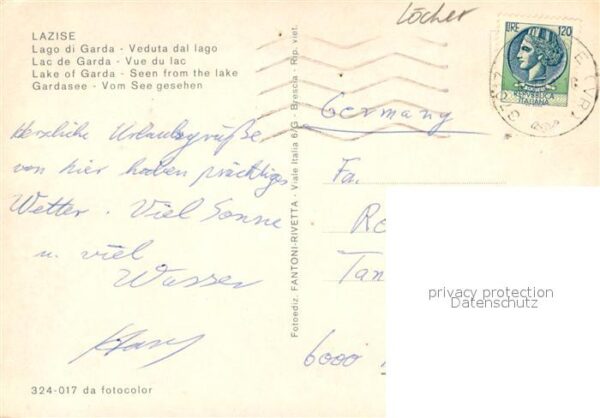 Löcher
LAZISE
Lago di Garda - Veduta dal lago
Lac de Garda - Vue du lac
Lake of Garda - Seen from the lake
Gardasee - Vom See gesehen
Herzliche Urlaubsgrüße
von hier haben prächtiges
Wetter. Viel Sonne
u. viel
Wasser
324-017 da fotocolor
Fotoediz. FANTONI-RIVETTA - Viale Italia 6/G - Brescia - Rip. viet.
LIRE 120
REPVBBLICA
ITALIANA
(VR)
Germany
Fa.
Re
Tan
6000
privacy protection
Datenschutz